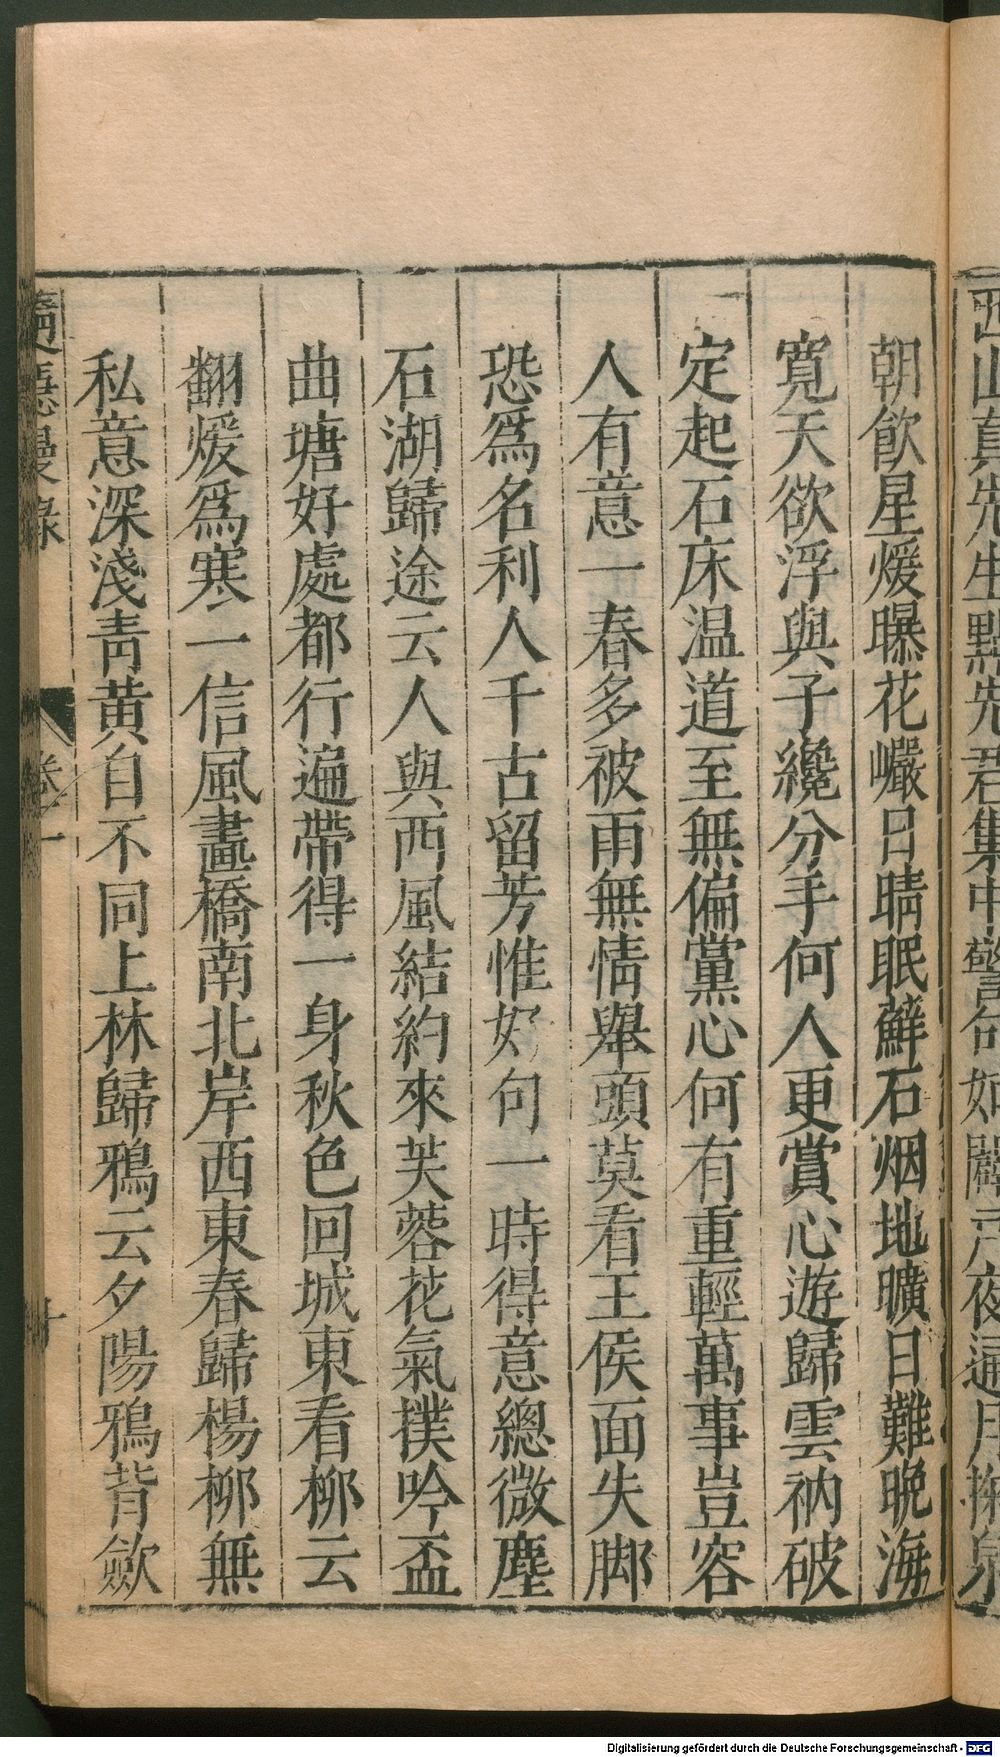 西山真先生點先君集中警句如嚴扉夜通月掬泉
朝飲星煖曝花巘日晴眠蘚石烟地曠日難晚海
寛天欲浮與子纔分手何人更賞心遊歸雲衲破
定起石床温道至無偏黨心何有重輕萬事豈容
人有意一春多被雨無情舉頭莫看王侯面失脚
恐爲名利人千古留芳惟好句一時得意總微塵
石湖歸途云人與西風結約來芙蓉花氣撲吟盃
曲塘好處都行遍帶得一身秋色回城東看柳云
翻煖爲寒一信風畫橋南北岸西東春歸楊柳無
私意深淺靑黄自不同上林歸鴉云夕陽鴉背斂
隨隱漫錄
卷一
十
Digitalisierung gefördert durch die Deutsche Forschungsgemeinschaft - DFG